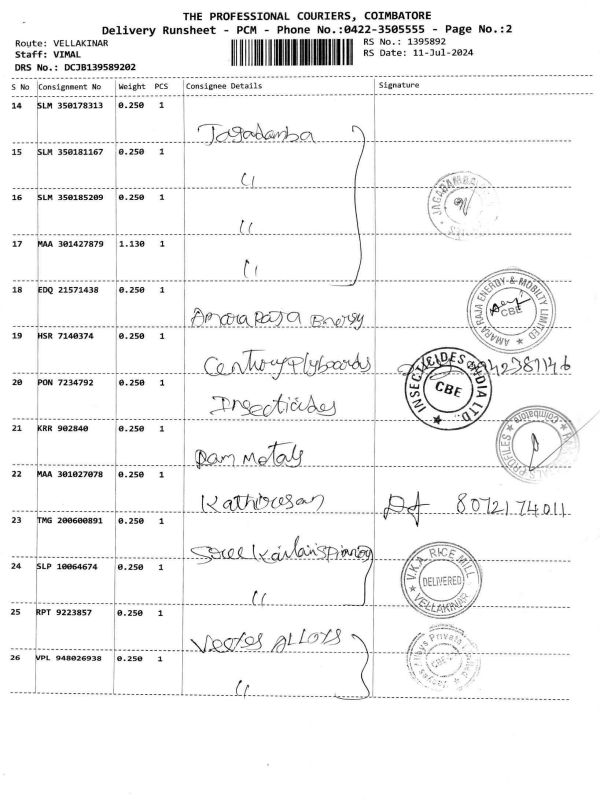 THE PROFESSIONAL COURIERS, COIMBATORE
Delivery Runsheet - PCM - Phone No.:0422-3505555 - Page No.:2
Route: VELLAKINAR RS No.: 1395892
Staff: VIMAL RS Date: 11-Jul-2024
DRS No.: DCJB139589202
S No Consignment No Weight PCS Consignee Details Signature
14 SLM 350178313 0.250 1 Jagadamba
15 SLM 350181167 0.250 1 "
16 SLM 350185209 0.250 1 "
17 MAA 301427879 1.130 1 "
18 EDQ 21571438 0.250 1 Amara Raja Energy
AMARA RAJA ENERGY & MOBILITY LIMITED
CBE
19 HSR 7140374 0.250 1 Century Plyboards
20 PON 7234792 0.250 1 Insecticides
INSECTICIDES INDIA LTD.
CBE
21 KRR 902840 0.250 1 Ram Metals
PROFILES Coimbatore
22 MAA 301027078 0.250 1 Kathiresan 8072174011
23 TMG 200600891 0.250 1
24 SLP 10064674 0.250 1 "
V.K.A. RICE MILL
DELIVERED
VELLAKINAR
25 RPT 9223857 0.250 1
26 VPL 948026938 0.250 1 "